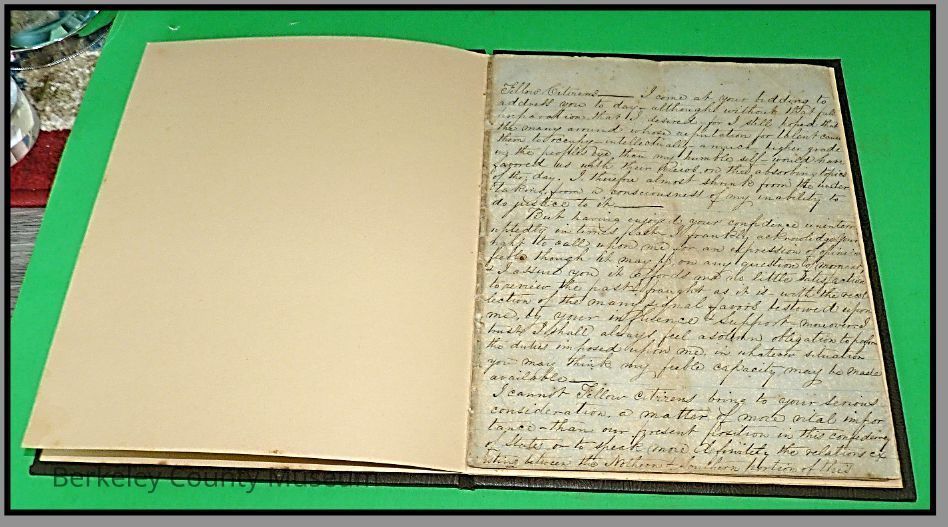 Fellow Citizens — I come at your bidding to
address you to day – although without that full
preparation that I desired, for I still hoped that
the many around whose reputation for talent
them to occupy – intellectually – a much higher grade
in the peoples eye than my humble self – would have
favored us with their on this absorbing topics
of the day. I therefore almost shrunk from the under
taking from a consciousness of my inability to
do justice to it —
But having enjoyed your confidence uninterr
uptedly in times past – I frankly acknowledge your
right to call upon me for an expression of opinion
feeble though it may be on any question of moment
& I assure you it affords me no little satisfaction
to review the past fraught as it is with the recol
lection of the many signal favors bestowed upon
me, by your influence & support moreover I
trust I shall always feel a solemn obligation to perform
the duties imposed upon me, in whatever situation
you may think my feeble capacity may be made
available —
I cannot Fellow Citizens bring to your serious
consideration, a matter of more vital impor
tance – than our present position in this confederacy
of States or to speak more definitely the relations ex
isting between the Northern & Southern portion of this
Berkeley County Museum